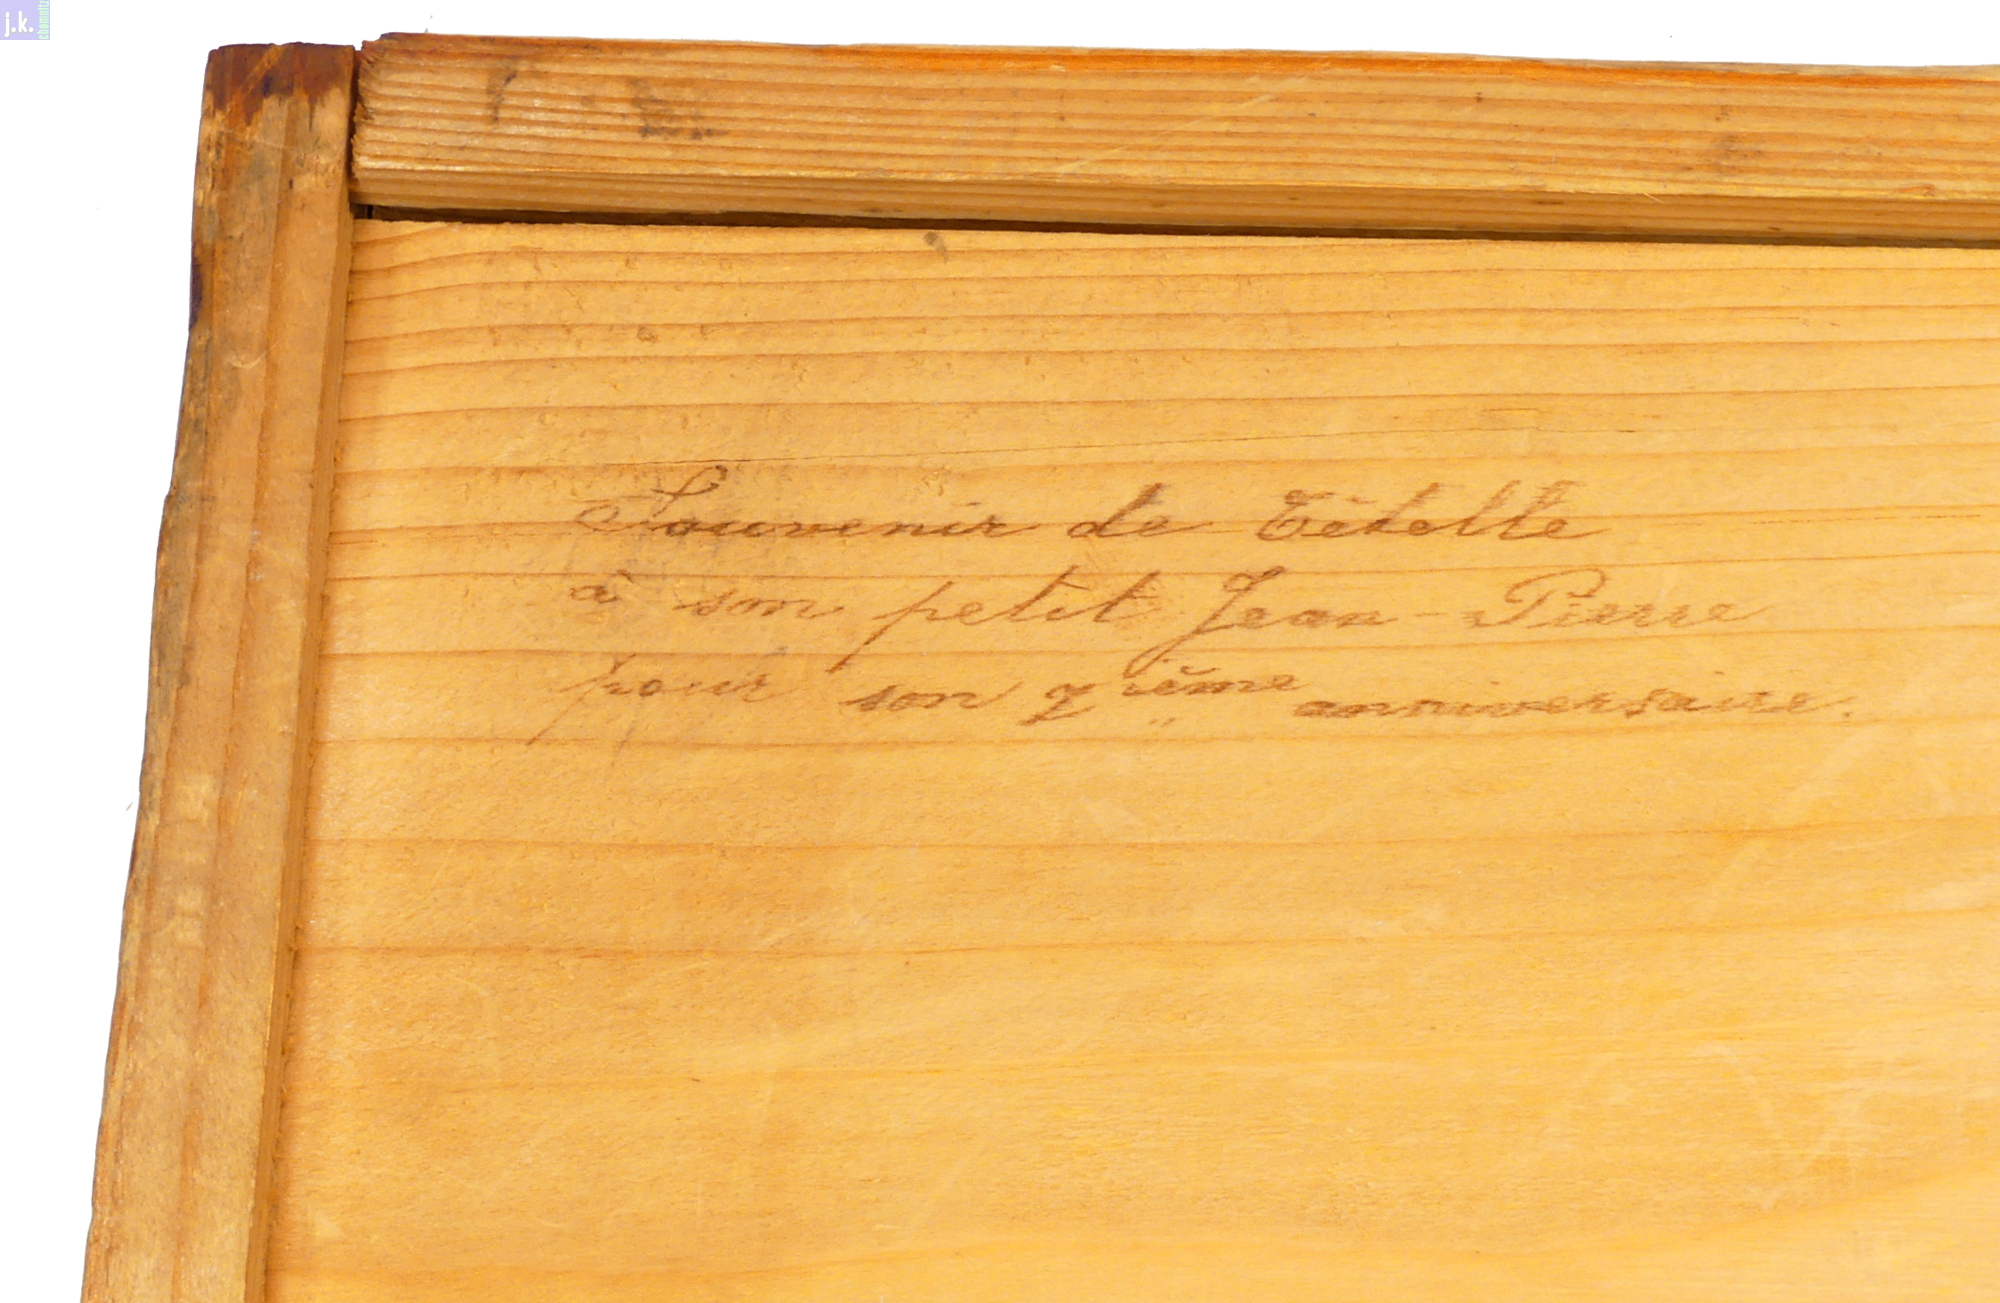 j.k.
chemnitz
Souvenir de
à son petit Jean-Pierre
pour son 7ième anniversaire.